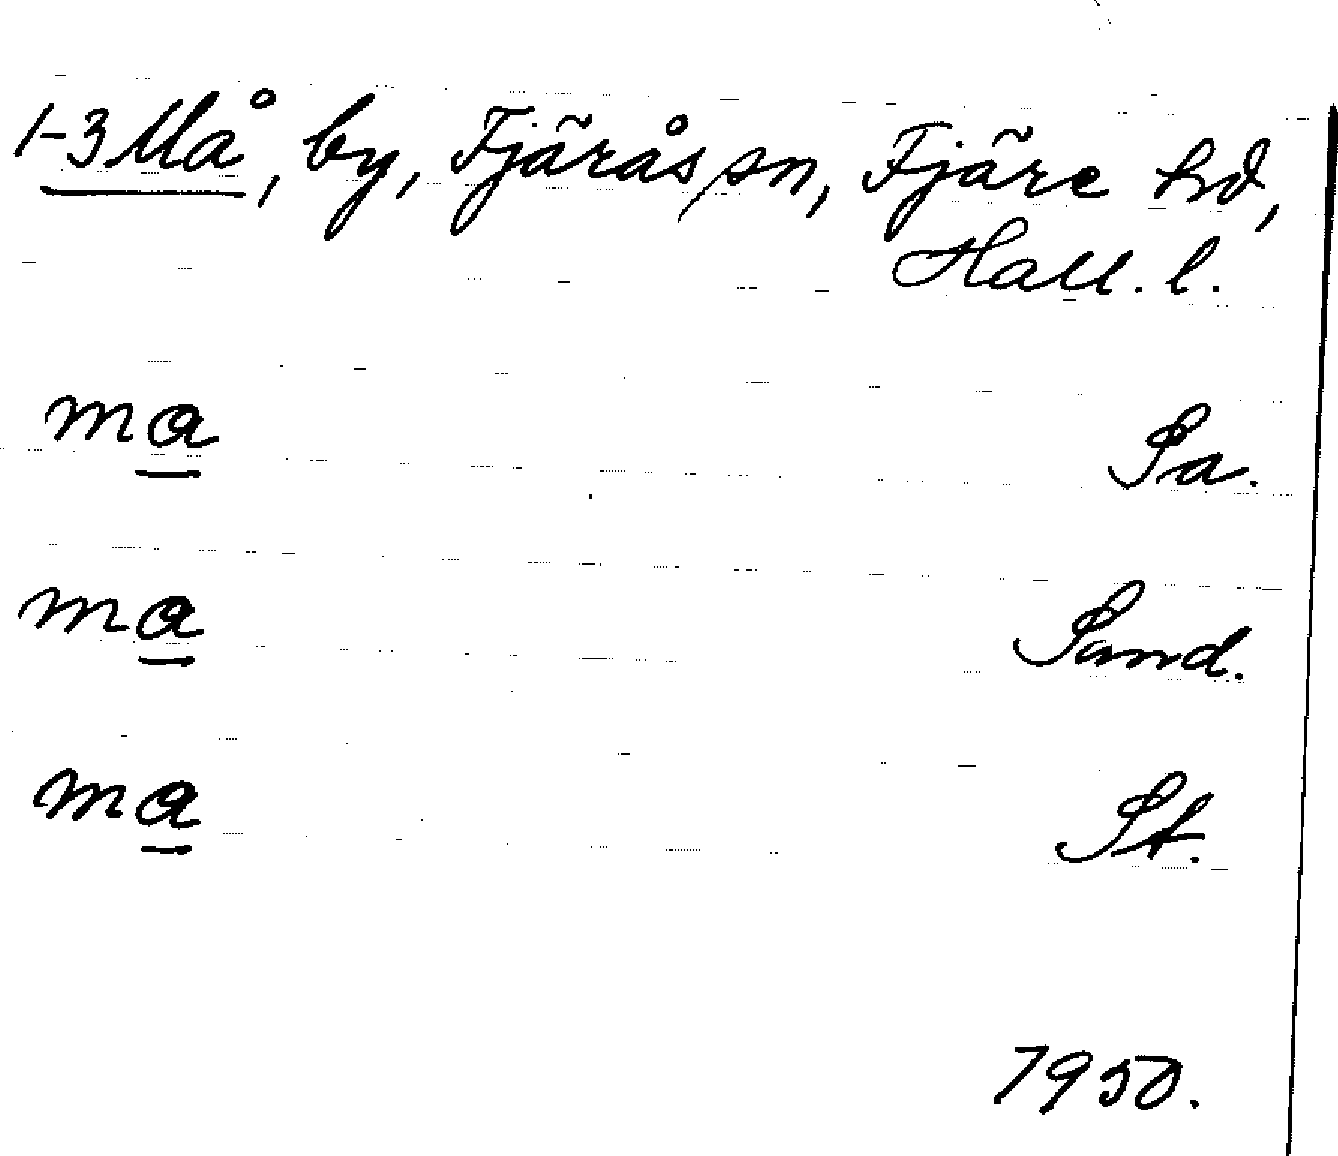 1-3 Må, by, Fjärås sn, Fjäre hd,
Hall. l.
ma Sa.
ma Sand.
ma St.
1950.